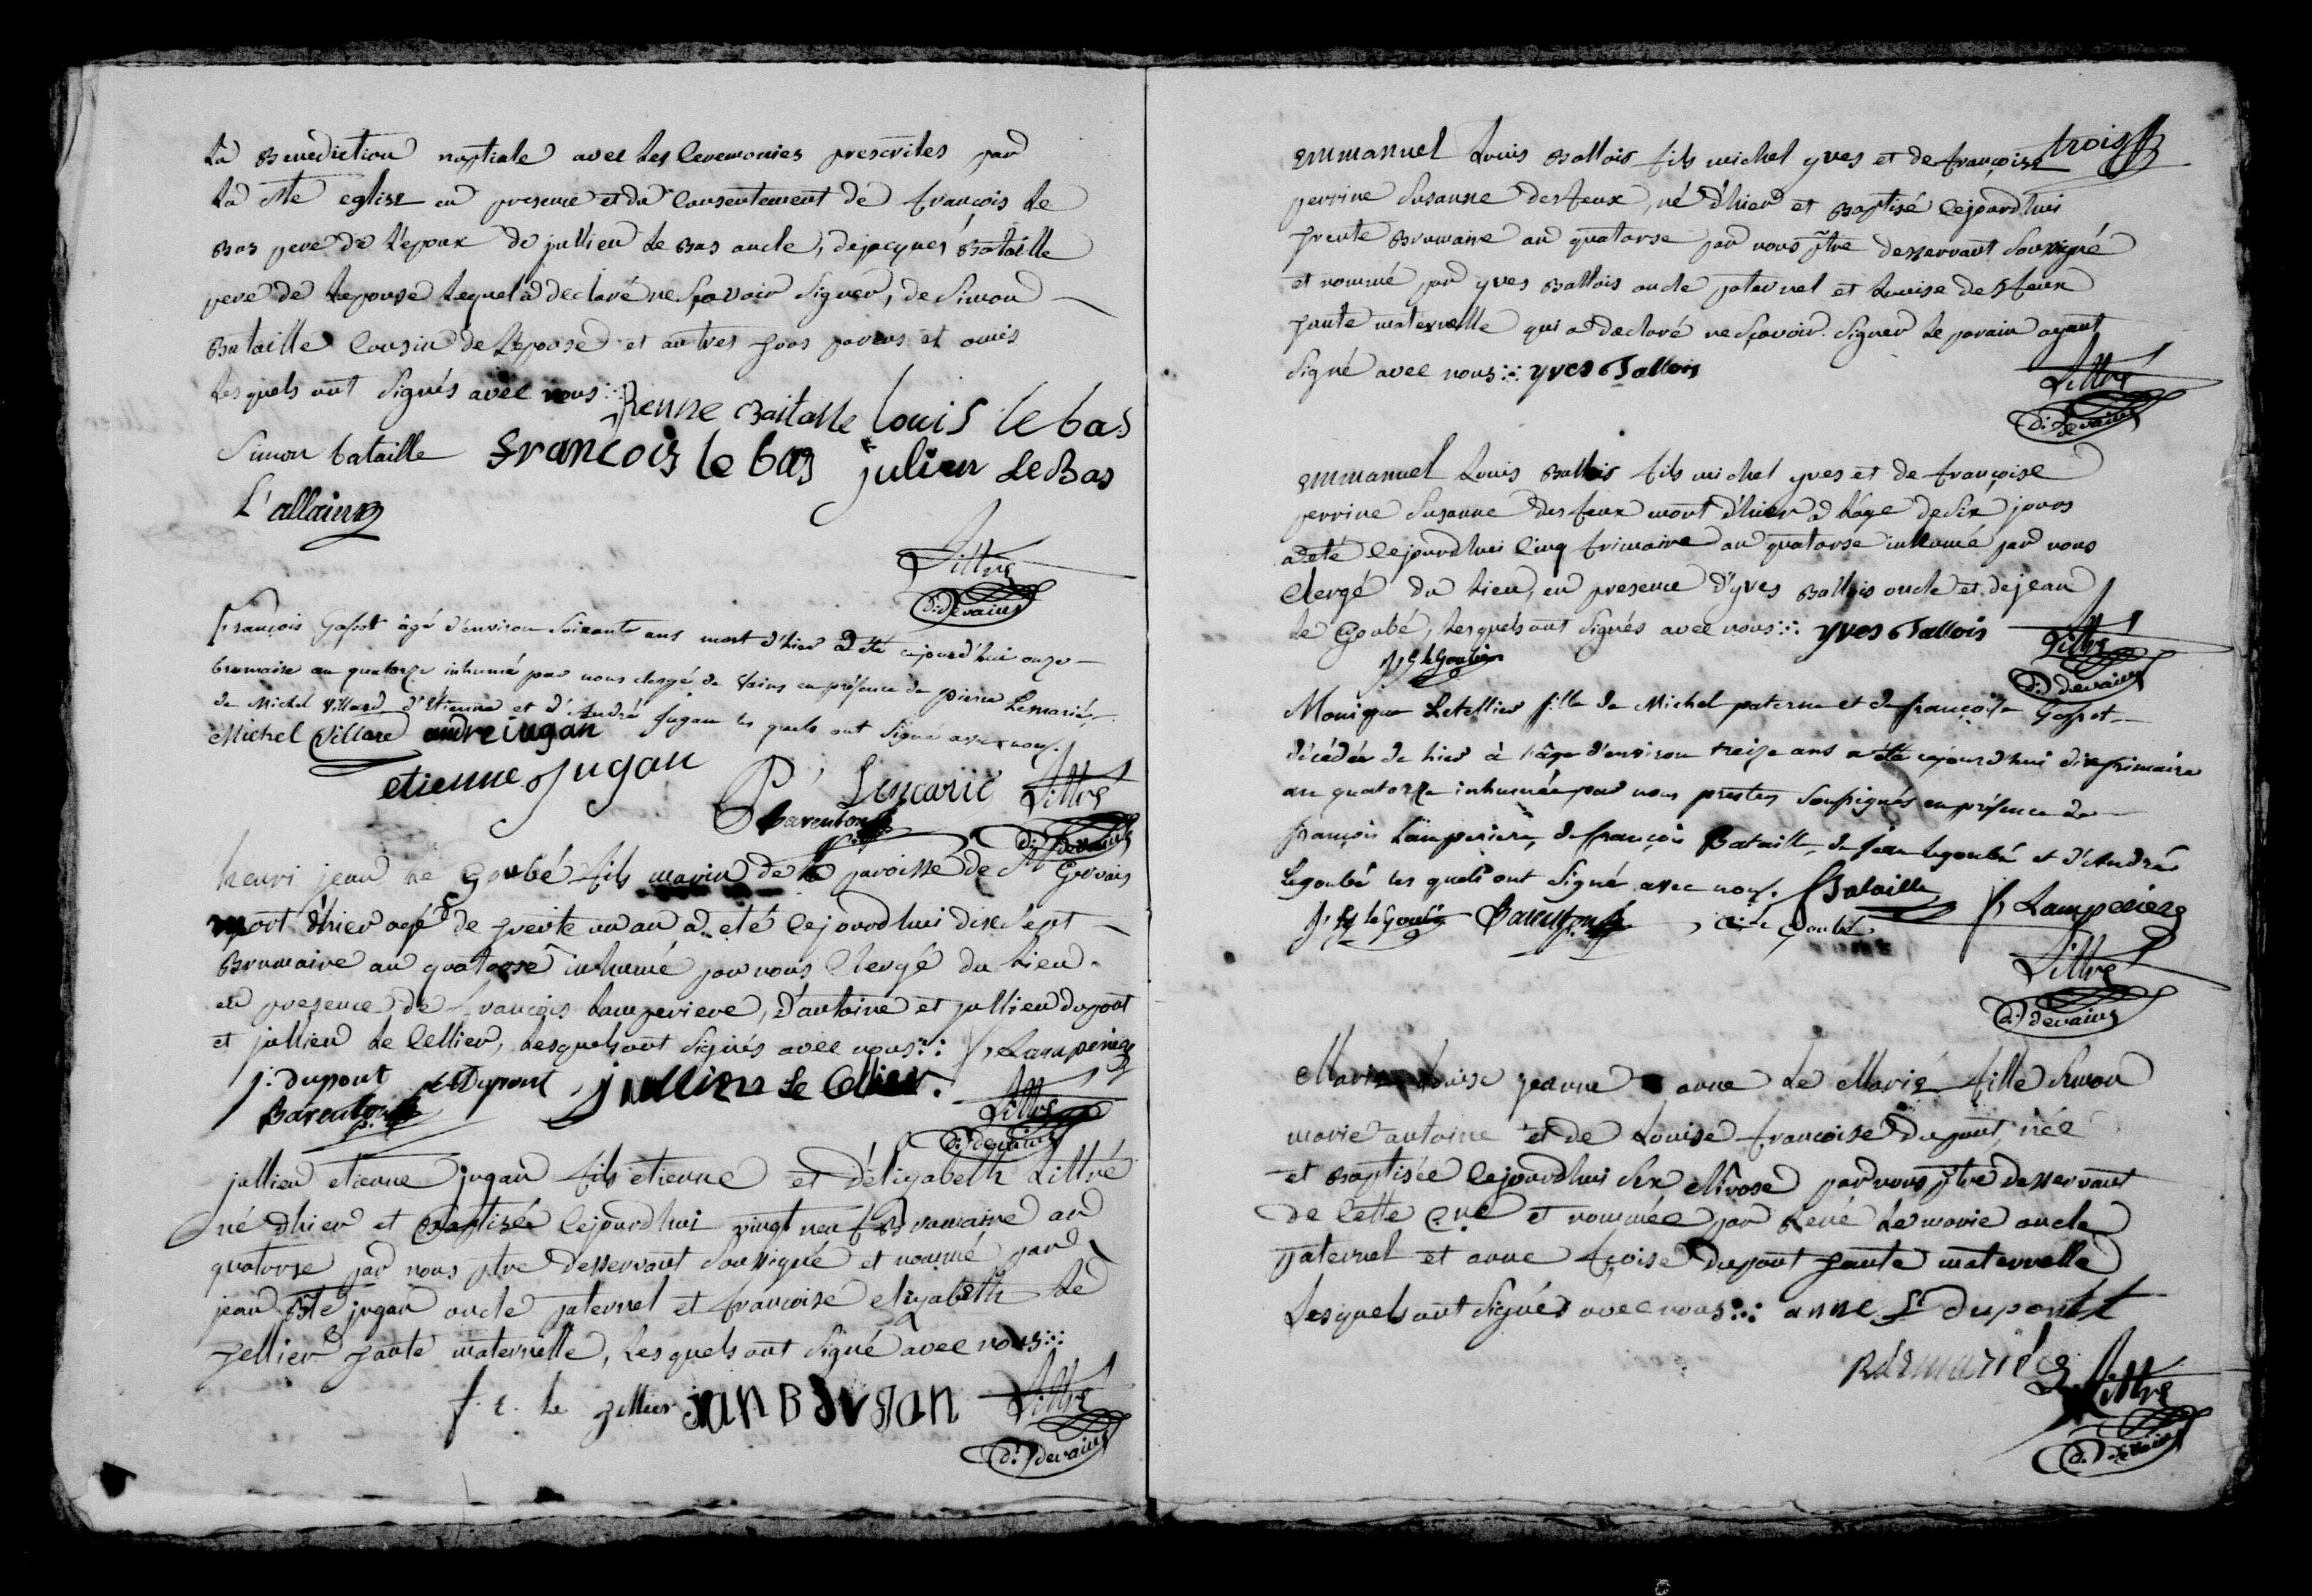 La Benediction nuptiale avec Les Ceremonies prescrites par
La Ste eglise en presence et du Consentement de françois Le
Bas pere de L'epoux de jullien Le Bas oncle, de jacques Bataille
pere de Lepouse Lequel a declaré ne Sçavoir Signer, de Simon
Bataille Cousin de Lepouse et autres parens et amis
Lesquels ont Signés avec nous
Renne Baitaille Louis le bas
Simon bataille francois le bas julien Le Bas
L'allain
Littré
d: devains
françois Gassot âgé d'environ Soixante ans mort d'hier a été cejourd'hui onze
brumaire an quatorze inhumé par nous clergé de Vains en présence de pierre Lemarié
de Michel Villard d'Etienne et d'André Jugan les quels ont Signé avec nous.
Michel Villard andre iugan
etienne Jugan P. Lemarié Littré
Barenton d: devains
henri jean Le Goubé fils marin de la paroisse de St Gervais
mort d'hier agé de trente un an a eté Cejourdhui dix Sept
Brumaire an quatorse inhumé par nous Clergé du Lieu
en presence de françois Lamperiere, d'antoine et jullien dupont
et jullien Le Cellier, Lesquels ont Signés avec nous f, Lamperiere
j. dupont A Dupont jullien Le Cellier.
Barenton Littré
d: devains
jullien etienne jugan fils etienne et d'elizabeth Littré
né d'hier et Baptisé Cejourdhui vingt neuf Brumaire an
quatorse par nous ptre desservant Soussigné et nommé par
jean Bte jugan oncle paternel et françoise elizabeth Le
Tellier tante maternelle, Lesquels ont Signé avec nous
f. e. Le Tellier jan B Jugan Littré
d: devains
trois
emmanuel Louis Ballois fils michel yves et de françoise
perrine Susanne desfeux, né d'hier et Baptisé Cejourdhui
trente Brumaire an quatorse par nous ptre desservant Soussigné
et nommé par yves Ballois oncle paternel et Louise desfeux
tante maternelle qui a declaré ne Sçavoir Signer Le parain ayant
Signé avec nous yves Ballois
Littré
d: devains
emmanuel Louis Ballois fils michel yves et de françoise
perrine Susanne desfeux mort d'hier a L'age de Six jours
a eté Cejourdhui Cinq frimaire an quatorse inhumé par nous
Clergé du Lieu, en presence d'yves Ballois oncle et de jean
Le Goubé, Lesquels ont Signés avec nous yves Ballois Littré
d: devains
Monique Letellier fille de Michel paterne et de françoise Gassot
décédée de hier à l'âge d'environ treize ans a été cejourd'hui dix frimaire
an quatorze inhumée par nous prêtres Soussignés en présence de
françois Lamperiere, de françois Bataille, de Jean Legoubé et d'André
Legoubé les quels ont Signé avec nous. f Bataille
Barenton a: Le Goubé f, Lamperiere
Littré
d: devains
Marie Louise jeanne anne Le Marié fille Simon
marie antoine et de Louise françoise dupont, née
et Baptisée Cejourdhui Six Nivose par nous ptre desservant
de Cette et nommée par René Le marié oncle
paternel et anne fçoise dupont tante maternelle
Lesquels ont Signés avec nous anne f dupontt
R Lemarié
Littré
d: devains